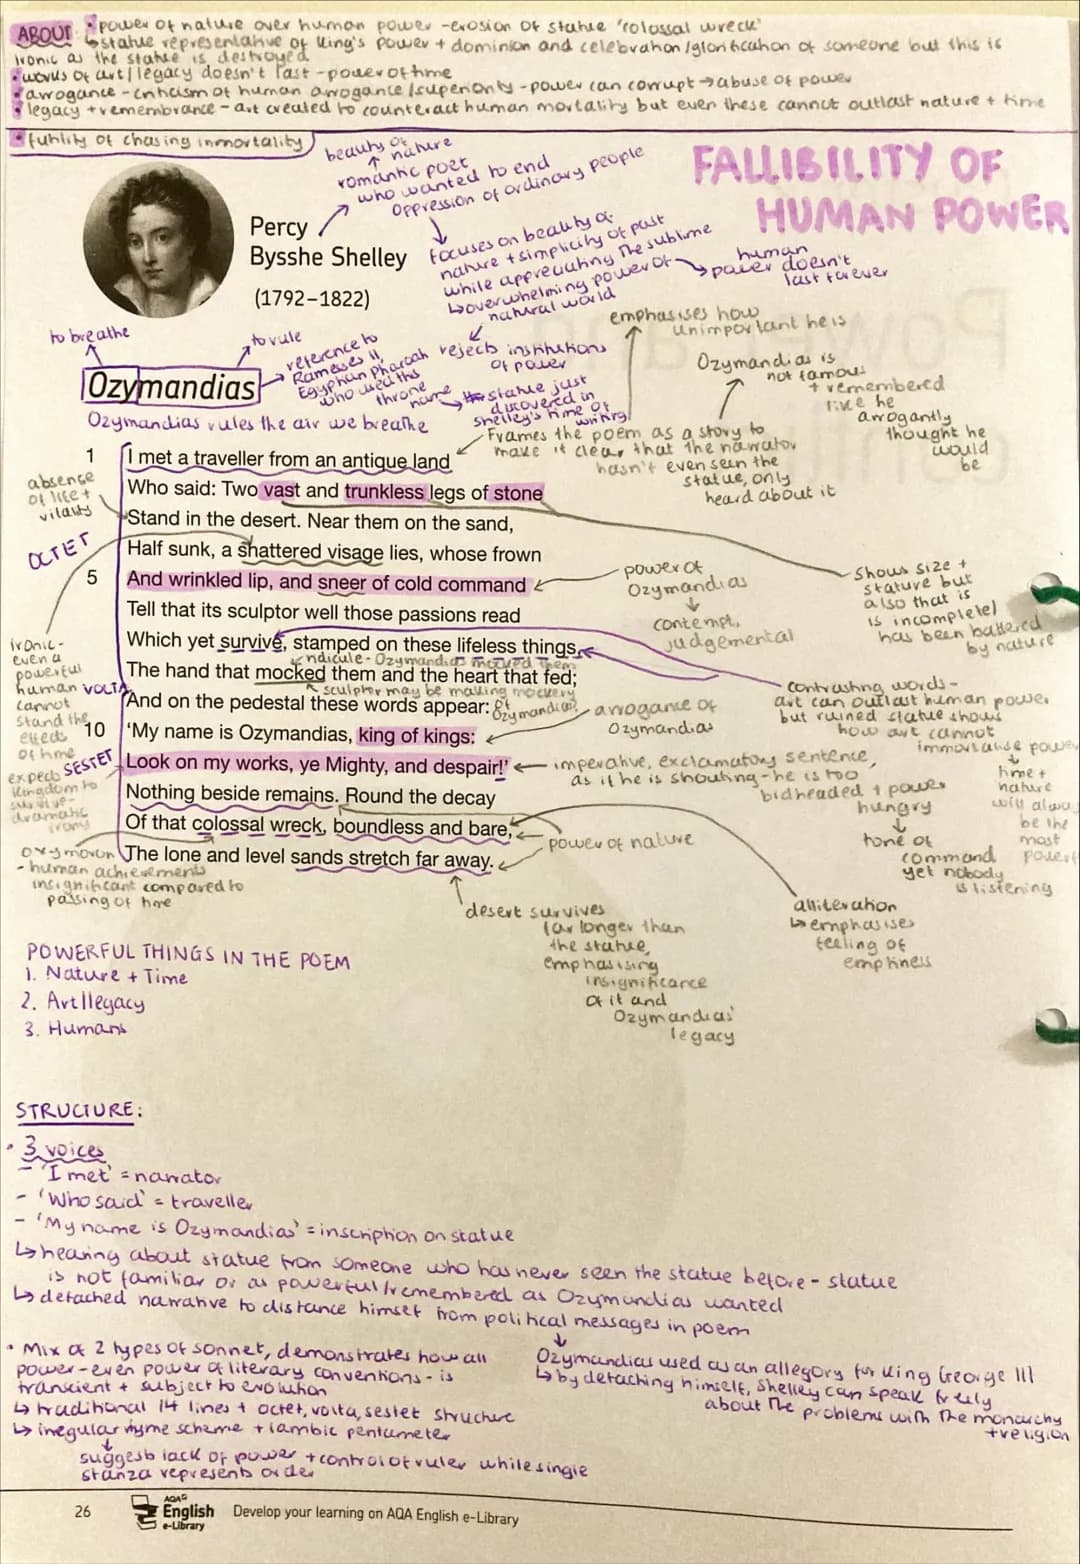 ABOUT •power of nature over human power -erosion of statue 'colossal wreck'
↳statue representative of King's power + dominion and celebration/glorification of someone but this is
ironic as the statue is destroyed
•works of art/legacy doesn't last -power of time
•arrogance -criticism of human arrogance/superiority -power can corrupt→abuse of power
•legacy +remembrance - art created to counteract human mortality but even these cannot outlast nature + time
•futility of chasing immortality
FALLIBILITY OF
HUMAN POWER
beauty of
↑ nature
romantic poet
who wanted to end
oppression of ordinary people
Percy
Bysshe Shelley
(1792–1822)
focuses on beauty of
nature + simplicity of past
while appreciating the sublime
↳overwhelming power of
natural world
human
power doesn't
last forever
rejects institutions
of power
emphasises how
unimportant he is
Ozymandias is
not famous
+ remembered
like he
arrogantly
thought he
would
be
to breathe
to rule
Ozymandias
reference to
Ramesses II,
Egyptian Pharoah
who used this
throne
name
statue just
discovered in
Shelley's time of
writing
Ozymandias rules the air we breathe
Frames the poem as a story to
make it clear that the narrator
hasn't even seen the
statue, only
heard about it
1 I met a traveller from an antique land
Who said: Two vast and trunkless legs of stone
Stand in the desert. Near them on the sand,
Half sunk, a shattered visage lies, whose frown
5 And wrinkled lip, and sneer of cold command
Tell that its sculptor well those passions read
Which yet survive, stamped on these lifeless things,
The hand that mocked them and the heart that fed;
And on the pedestal these words appear:
10 'My name is Ozymandias, king of kings:
Look on my works, ye Mighty, and despair!'
Nothing beside remains. Round the decay
Of that colossal wreck, boundless and bare,
The lone and level sands stretch far away.
absence
of life +
vitality
OCTET
ironic-
even a
powerful
human
cannot
stand the
effects
of time
VOLTA
SESTET
expects
kingdom to
survive-
dramatic
irony
oxymoron
- human achievements
insignificant compared to
passing of time
ridicule - Ozymandias mocked them
sculptor may be making mockery
of Ozymandias
power of
Ozymandias
↓
contempt,
judgemental
shows size +
stature but
also that is
is incomplete/
has been battered
by nature
arrogance of
Ozymandias
contrasting words-
art can outlast human power
but ruined statue shows
how art cannot
immortalise
↓
time +
nature
will
be the
most
imperative, exclamatory sentence,
as if he is shouting - he is too
bidheaded + power
hungry
↓
tone of
command
yet nobody
is listening
power of nature
alliteration
↳emphasises
feeling of
emptiness
desert survives
far longer than
the statue,
emphasising
insignificance
of it and
Ozymandias'
legacy
POWERFUL THINGS IN THE POEM
1. Nature + Time
2. Art/legacy
3. Humans
STRUCTURE:
• 3 voices
- 'I met' = narrator
- 'Who said' = traveller
- 'My name is Ozymandias' = inscription on statue
↳hearing about statue from someone who has never seen the statue before - statue
is not familiar or as powerful/remembered as Ozymandias wanted
↳detached narrative to distance himself from political messages in poem
↓
Ozymandias used as an allegory for King George III
↳by detaching himself, Shelley can speak freely
about the problems with the monarchy
+religion
• Mix of 2 types of sonnet, demonstrates how all
power-even power of literary conventions - is
transient + subject to evolution
↳traditional 14 lines + octet, volta, sestet structure
↳irregular rhyme scheme + iambic pentameter
↓
suggests lack of power + control of ruler while single
stanza represents order
26 AQA English e-Library Develop your learning on AQA English e-Library